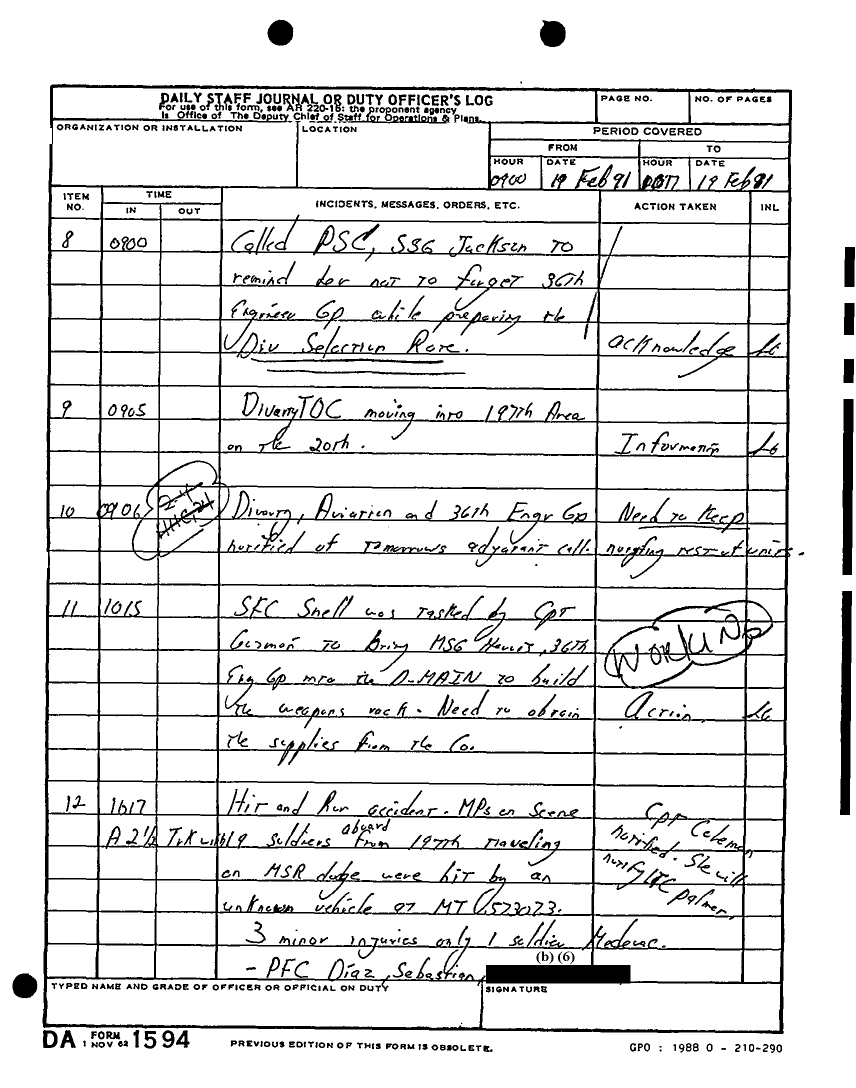 DAILY STAFF JOURNAL OR DUTY OFFICER'S LOG
For use of this form, see AR 220-15; the proponent agency
is Office of The Deputy Chief of Staff for Operations & Plans.
PAGE NO.
NO. OF PAGES
ORGANIZATION OR INSTALLATION
LOCATION
PERIOD COVERED
FROM
TO
HOUR
DATE
HOUR
DATE
0900
19 Feb 91
19 Feb 91
ITEM NO.
TIME
IN
OUT
INCIDENTS, MESSAGES, ORDERS, ETC.
ACTION TAKEN
INL
8 0900 Called PSC, SSG Jackson to
remind her not to forget 36th
Engineer Gp while preparing the
Div Selection Rate. acknowledge LG
9 0905 Divarty TOC moving into 197th Area
on the 20th. Information LG
10 0906 Divarty, Aviation and 36th Engr Gp Need to Keep
notified of tomorrows adjutant call. notifying rest of units.
11 1015 SFC Snell was tasked by Cpt
Guzman to bring MSG 36th
Eng Gp into the D-MAIN to build
the weapons rack. Need to obtain
the supplies from the Co.
WORKING
Action. LG
12 1617 Hit and Run accident. MPs on Scene
A 2 1/2 Trk with 19 soldiers aboard from 197th traveling
on MSR dodge were hit by an
unknown vehicle at MT 573073.
3 minor injuries only 1 soldier Medevac.
- PFC Diaz, Sebastian,
(b) (6)
Cpt Coleman
notified. She will
notify LTC Palmer.
TYPED NAME AND GRADE OF OFFICER OR OFFICIAL ON DUTY
SIGNATURE
DA FORM 1594
1 NOV 62
PREVIOUS EDITION OF THIS FORM IS OBSOLETE.
GPO : 1988 O - 210-290